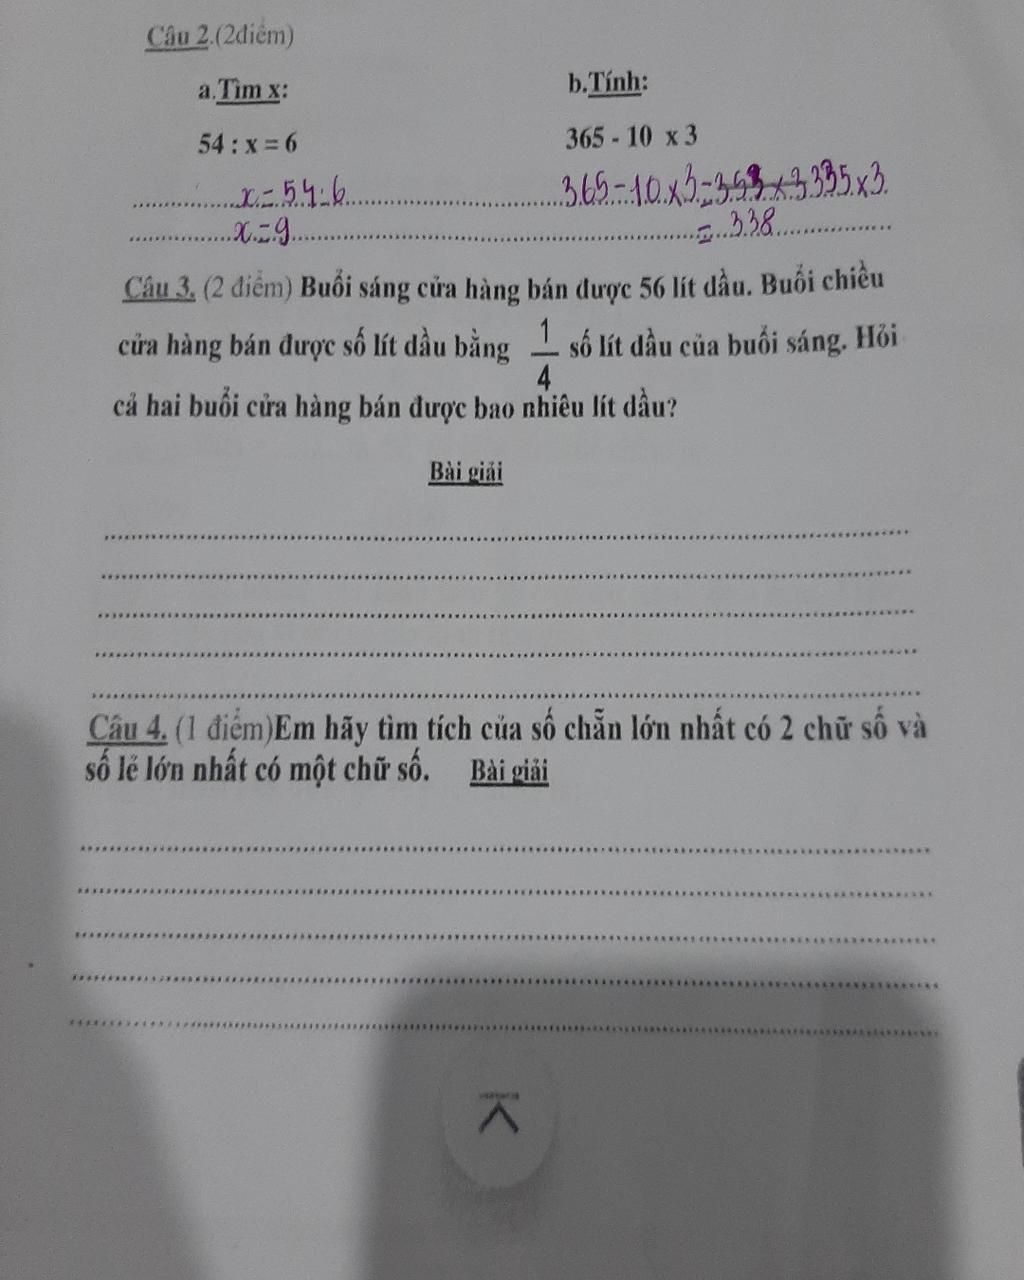 Câu 2.(2điểm)
a.Tìm x: b.Tính:
54 : x = 6 365 - 10 x 3
x = 54 : 6 365 - 10 x 3 = 353 x 3 335 x 3
x = 9 = 338
Câu 3. (2 điểm) Buổi sáng cửa hàng bán được 56 lít dầu. Buổi chiều
cửa hàng bán được số lít dầu bằng 1/4 số lít dầu của buổi sáng. Hỏi
cả hai buổi cửa hàng bán được bao nhiêu lít dầu?
Bài giải
Câu 4. (1 điểm)Em hãy tìm tích của số chẵn lớn nhất có 2 chữ số và
số lẻ lớn nhất có một chữ số. Bài giải